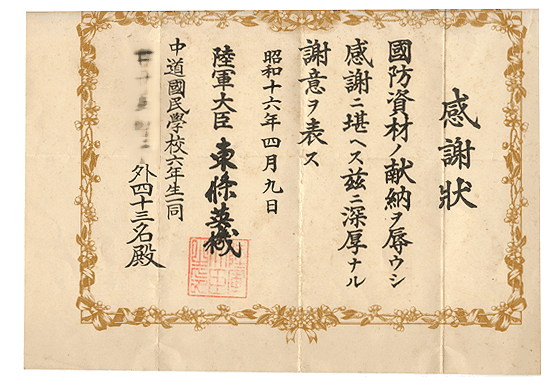 感謝狀
國防資材ノ献納ヲ辱ウシ
感謝ニ堪ヘス茲ニ深厚ナル
謝意ヲ表ス
昭和十六年四月九日
陸軍大臣 東條英機
中道國民學校六年生一同
外四十三名殿